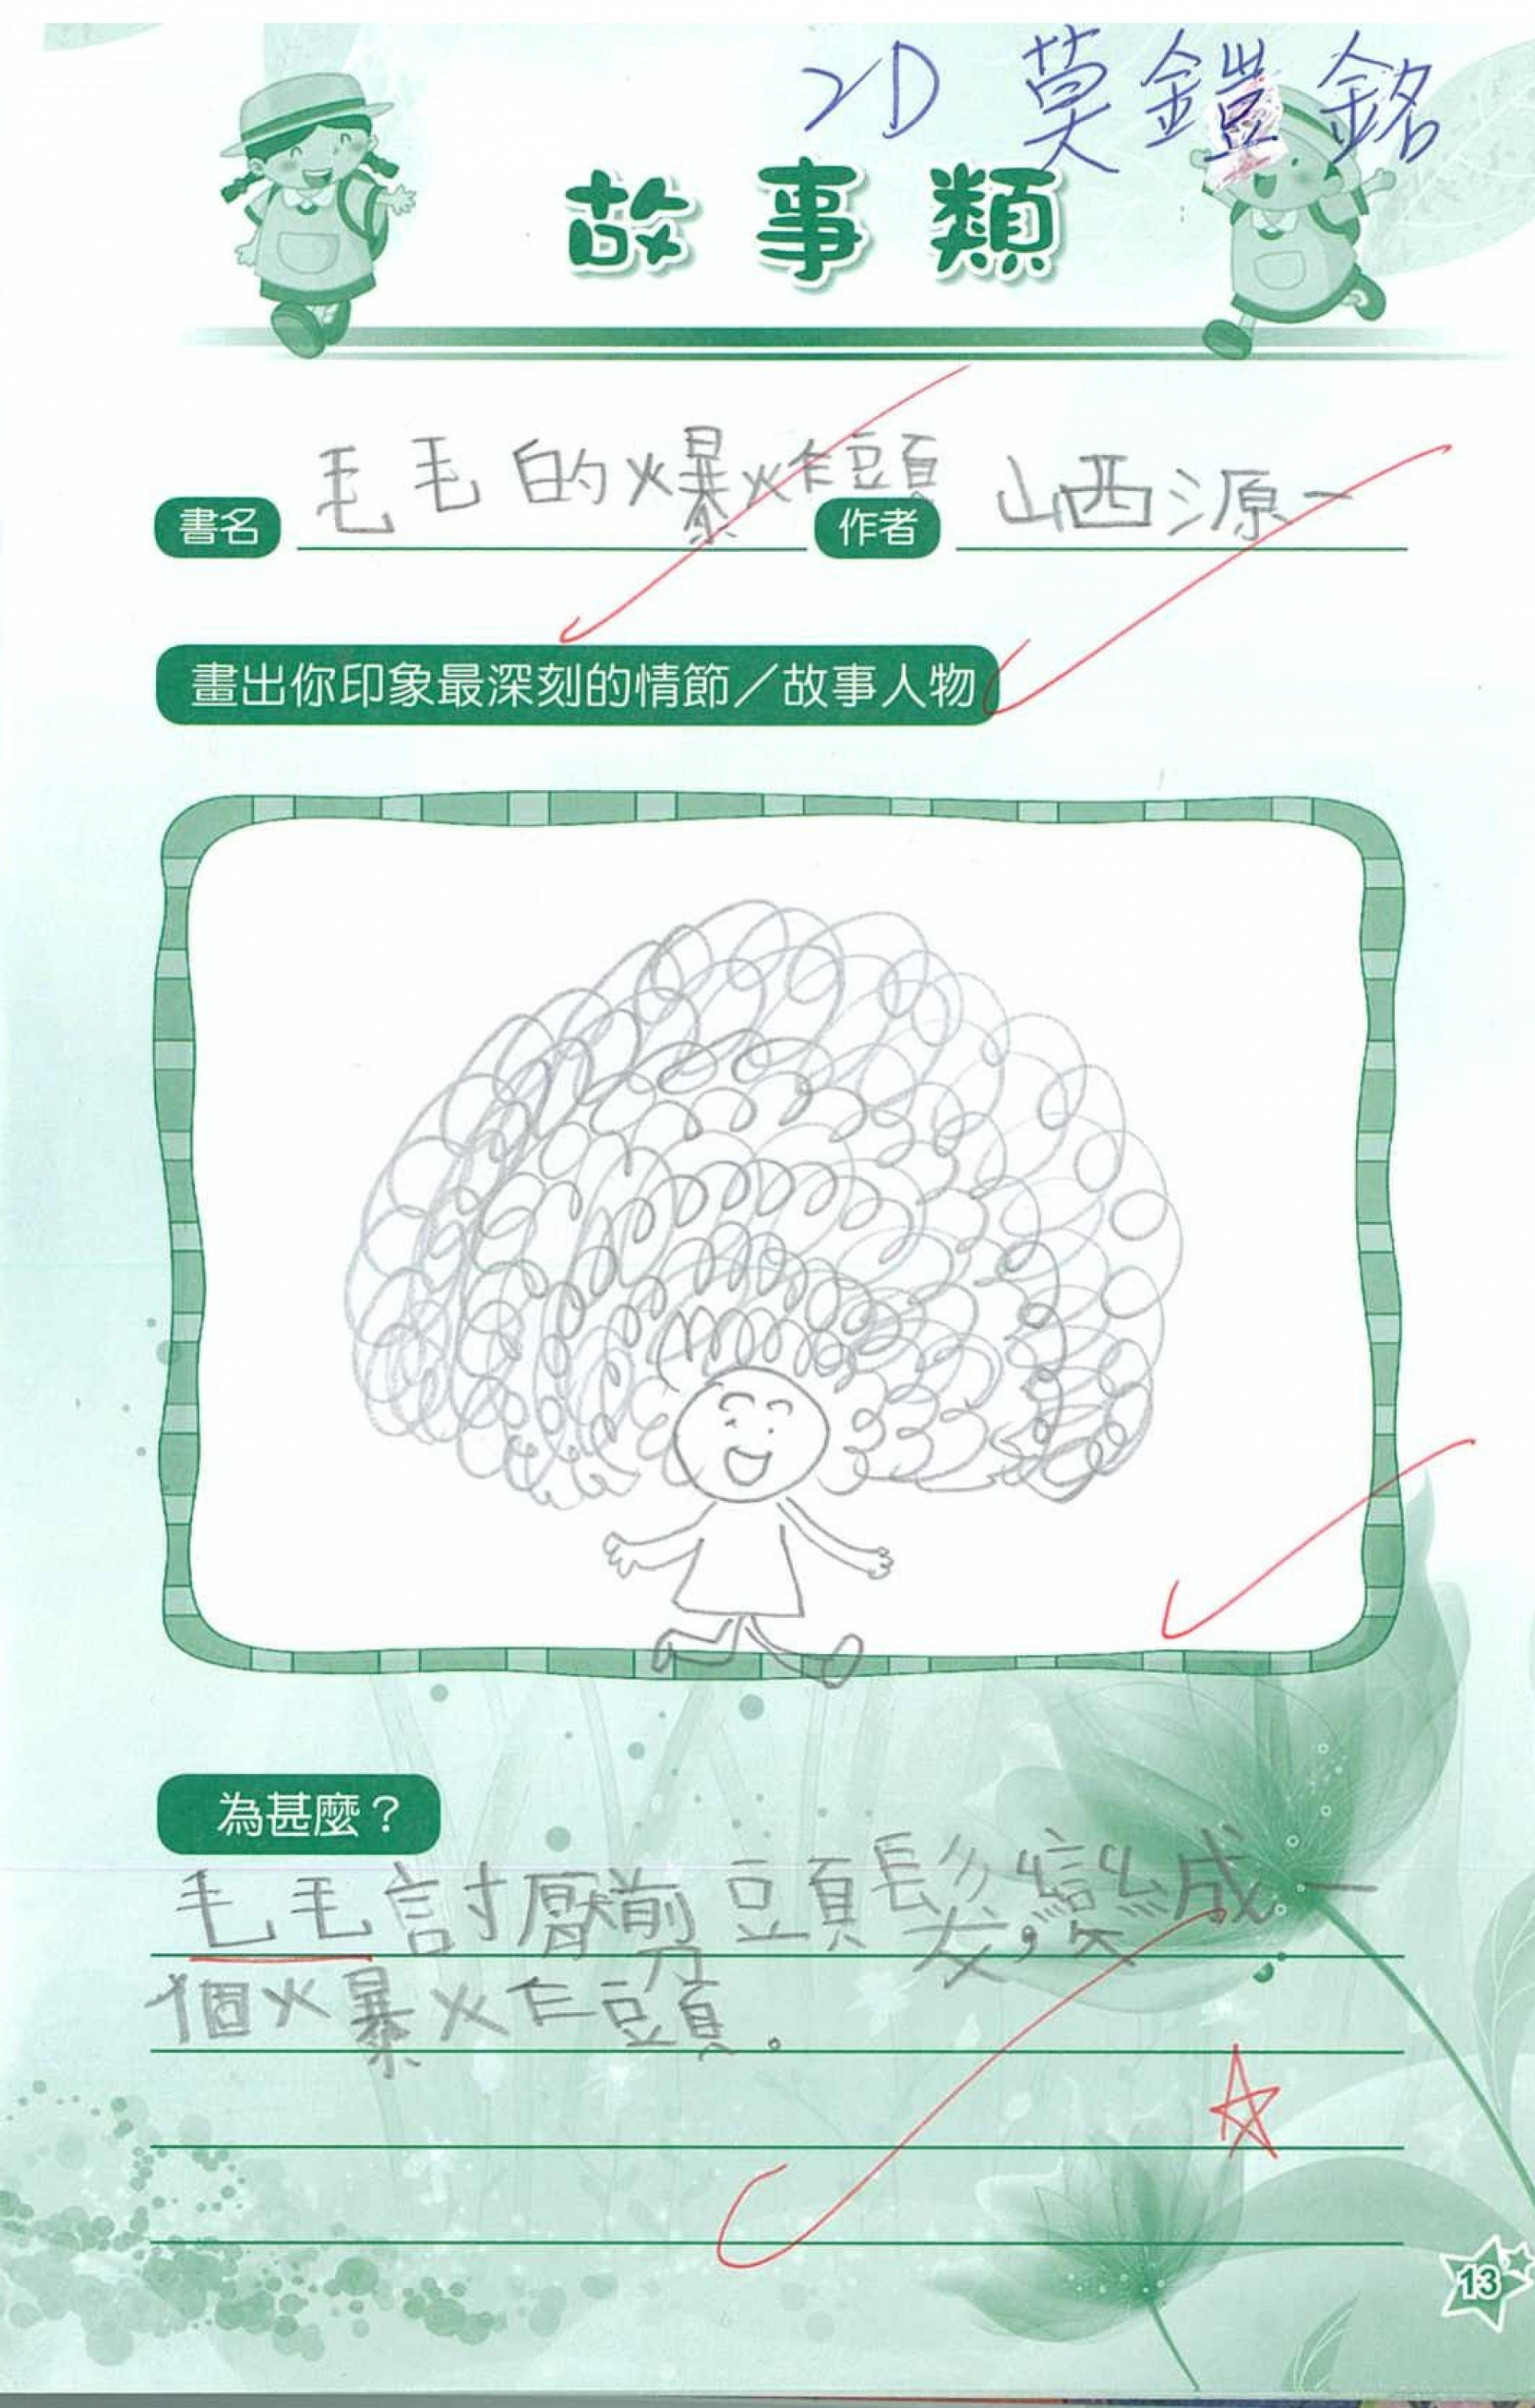 2D 莫鎧銘
故事類
書名 毛毛的爆炸頭 作者 山西源一
畫出你印象最深刻的情節／故事人物
為甚麼？
毛毛討厭剪頭髮，變成一
個爆炸頭。
13